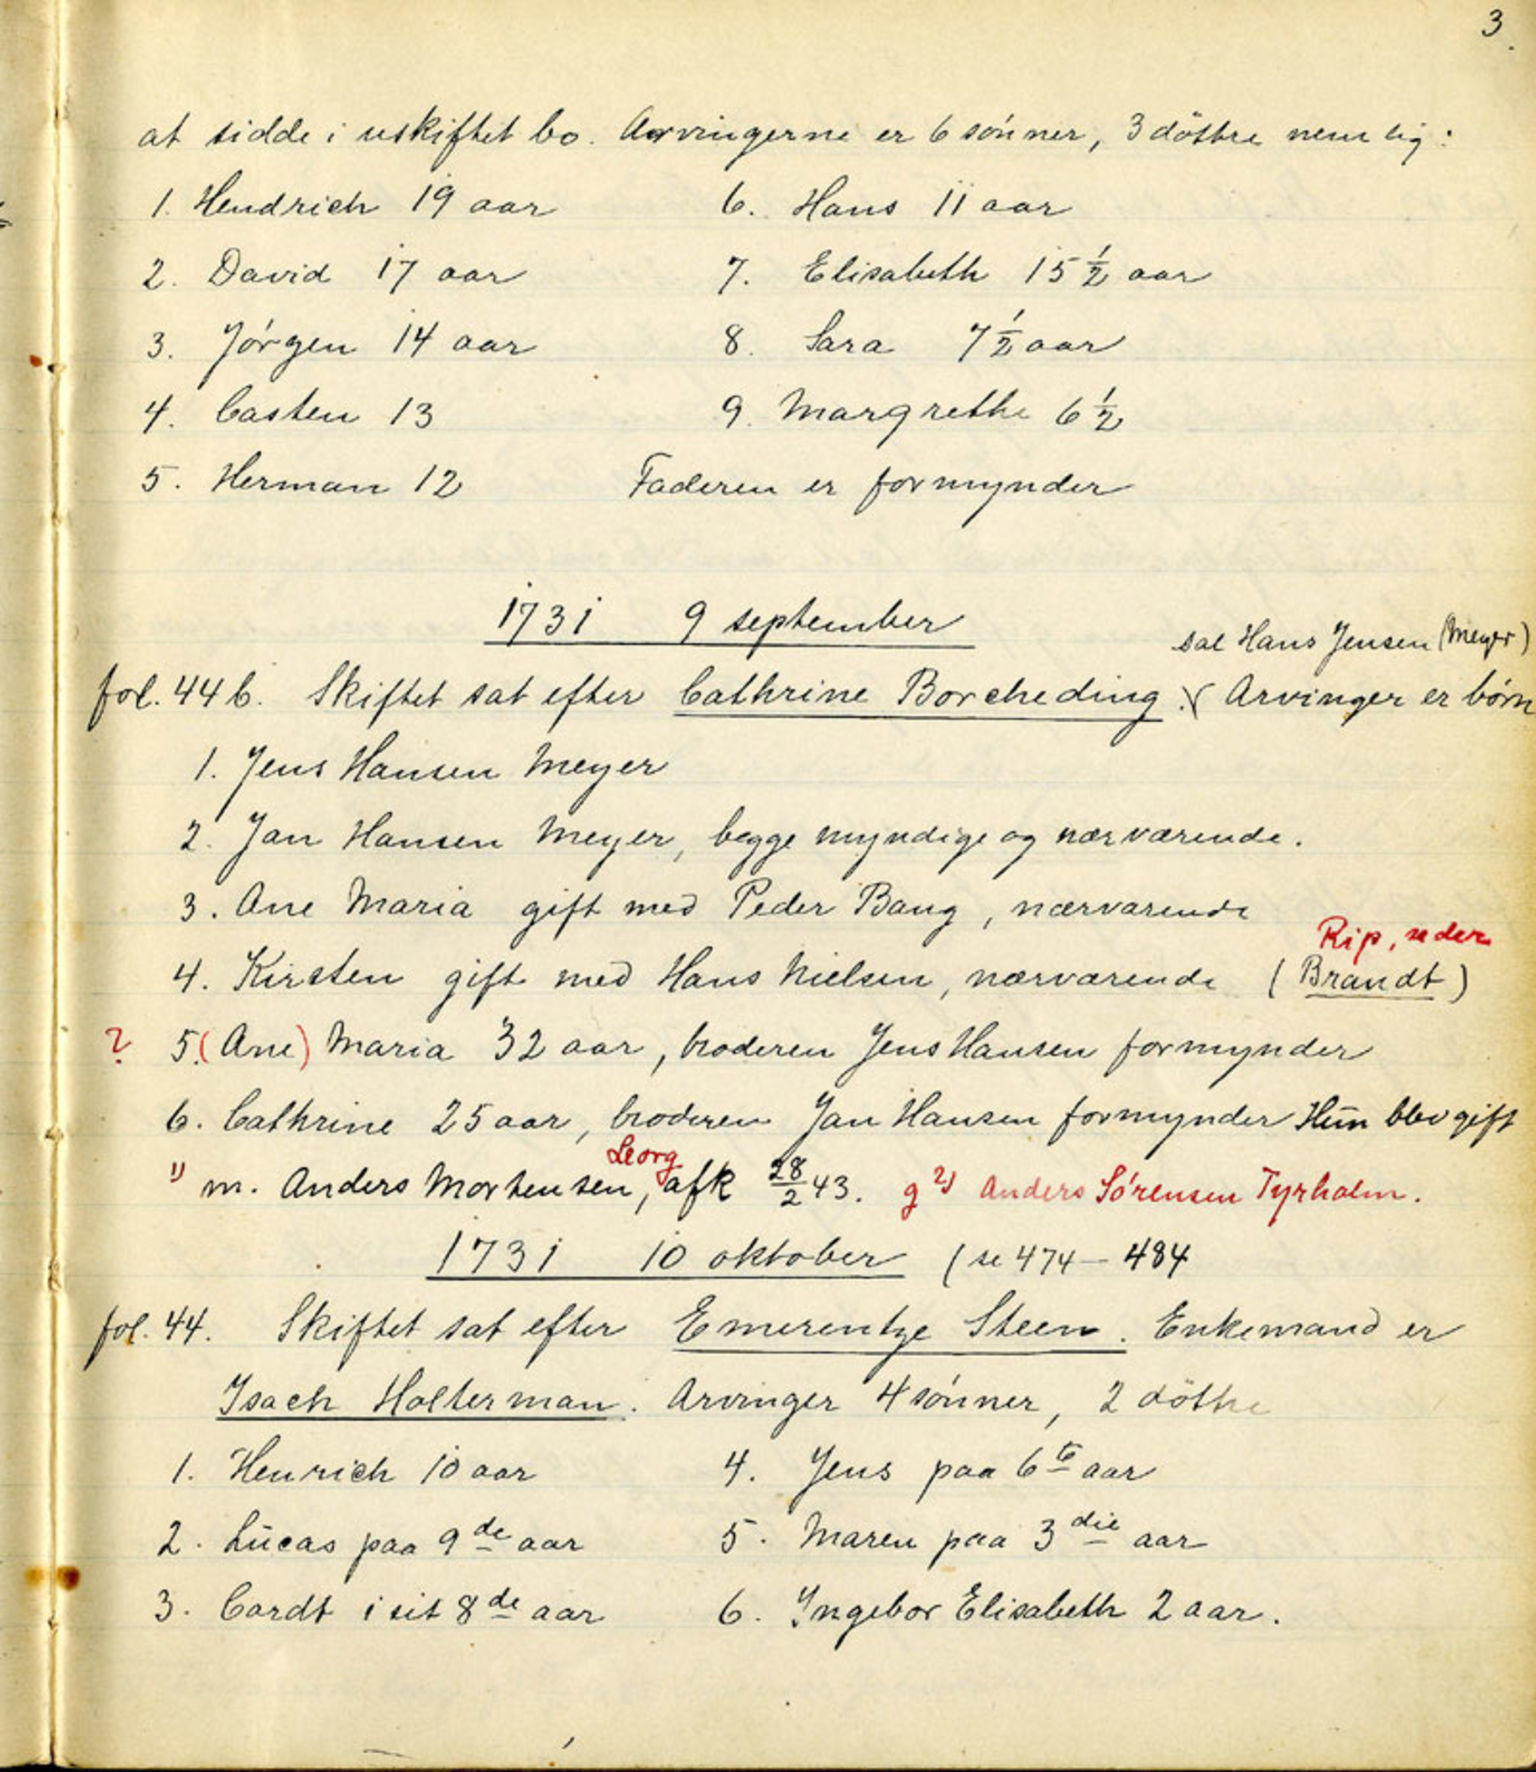 3.
at sidde i uskiftet bo. Arvingerne er 6 sønner, 3 döttre nemlig:
1. Hendrich 19 aar 6. Hans 11 aar
2. David 17 aar 7. Elisabeth 15 1/2 aar
3. Jørgen 14 aar 8. Sara 7 1/2 aar
4. Casten 13 9. Margrethe 6 1/2
5. Herman 12 Faderen er formynder
1731 9 september
sal Hans Jensen (Meyer)
fol. 44 b. Skiftet sat efter Cathrine Borcheding. Arvinger er børn
1. Jens Hansen Meyer
2. Jan Hansen Meyer, begge myndige og nærværende.
3. Ane Maria gift med Peder Bang, nærværende
Rip,
4. Kirsten gift med Hans Nielsen, nærværende (Brandt)
? 5. (Ane) Maria 32 aar, broderen Jens Hansen formynder
6. Cathrine 25 aar, broderen Jan Hansen formynder Hun blev gift
1) m. Anders Mortensen, afk 28/2 43. g 2) Anders Sørensen Tyrholm.
1731 10 oktober (se 474 — 484
fol. 44. Skiftet sat efter Emerentze Steen. Enkemand er
Isach Holterman. Arvinger 4 sønner, 2 döttre
1. Henrich 10 aar 4. Jens paa 6te aar
2. Lucas paa 9de aar 5. Maren paa 3die aar
3. Cordt i sit 8de aar 6. Ingebor Elisabeth 2 aar.